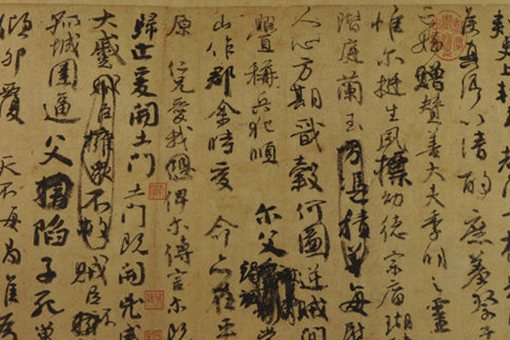 史上輕車
真卿以清酌庶羞祭
亡姪贈贊善大夫季明之靈
惟爾挺生夙標幼德宗廟瑚
階庭蘭玉方憑積善每慰
人心方期戩穀何圖逆賊間
釁稱兵犯順爾父竭誠常
山作郡余時受命亦在平
原仁兄愛我俾爾傳言爾既
歸止爰開土門土門既開凶威
大蹙賊臣擁眾不救賊臣不
孤城圍逼父陷子死巢
傾卵覆天不悔禍誰為